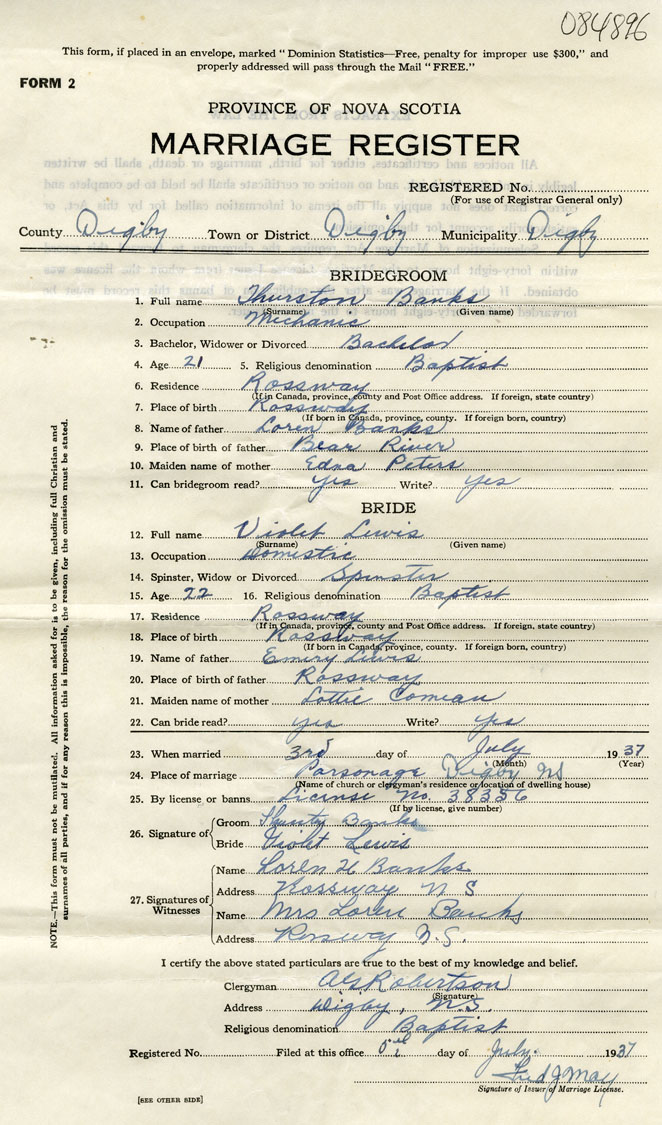 084896
This form, if placed in an envelope, marked “Dominion Statistics—Free, penalty for improper use $300,” and
properly addressed will pass through the Mail “FREE.”
FORM 2
PROVINCE OF NOVA SCOTIA
MARRIAGE REGISTER
REGISTERED No.
(For use of Registrar General only)
County Digby Town or District Digby Municipality Digby
BRIDEGROOM
1. Full name Thurston Banks
(Surname) (Given name)
2. Occupation Mechanic
3. Bachelor, Widower or Divorced Bachelor
4. Age 21 5. Religious denomination Baptist
6. Residence Rossway
(If in Canada, province, county and Post Office address. If foreign, state country)
7. Place of birth Rossway
(If born in Canada, province, county. If foreign born, country)
8. Name of father Loren Banks
9. Place of birth of father Bear River
10. Maiden name of mother Edna Peters
11. Can bridegroom read? yes Write? yes
BRIDE
12. Full name Violet Lewis
(Surname) (Given name)
13. Occupation Domestic
14. Spinster, Widow or Divorced Spinster
15. Age 22 16. Religious denomination Baptist
17. Residence Rossway
(If in Canada, province, county and Post Office address. If foreign, state country)
18. Place of birth Rossway
(If born in Canada, province, county. If foreign born, country)
19. Name of father Emery Lewis
20. Place of birth of father Rossway
21. Maiden name of mother Lottie Comeau
22. Can bride read? yes Write? yes
23. When married 3rd day of July 1937
(Month) (Year)
24. Place of marriage Parsonage Digby NS
(Name of church or clergyman's residence or location of dwelling house)
25. By license or banns License No. 38356
(If by license, give number)
26. Signature of Groom Banks
Bride Violet Lewis
27. Signatures of Witnesses
Name Loren H Banks
Address Rossway N S
Name Mrs Loren Banks
Address Rossway N.S.
I certify the above stated particulars are true to the best of my knowledge and belief.
Clergyman Robertson
(Signature)
Address Digby, N.S.
Religious denomination Baptist
Registered No. Filed at this office 5th day of July. 1937
Fred J May
Signature of Issuer of Marriage License.
[SEE OTHER SIDE]
NOTE.—This form must not be mutilated. All information asked for is to be given, including full Christian and
surnames of all parties, and if for any reason this is impossible, the reason for the omission must be stated.